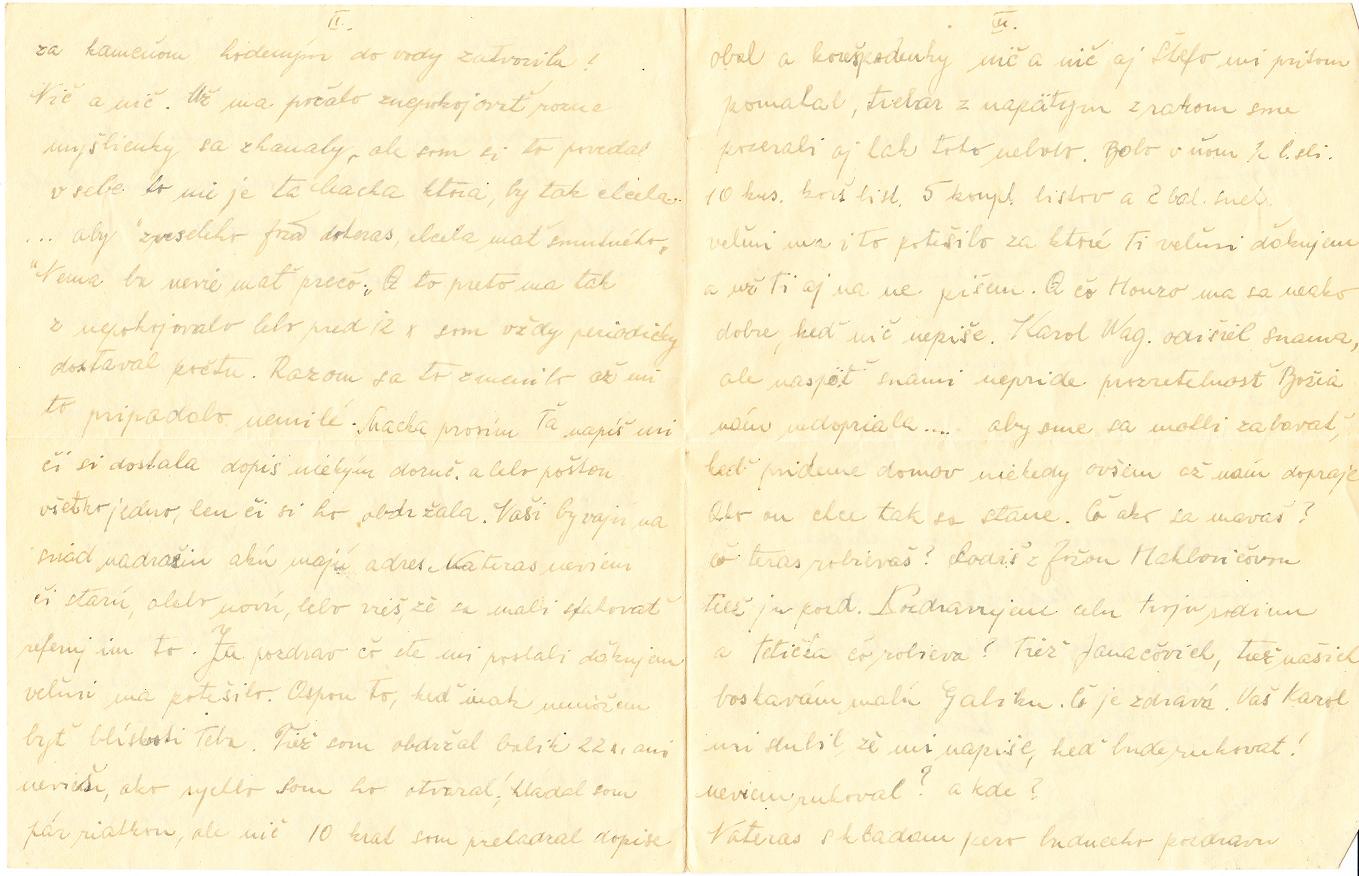 II.
za kameňom hodeným do vody zatvorila!
Nič a nič. Už ma počalo znepokojovať rôzne
myšlienky sa zhanaly, ale som si to povedal
v sebe to nie je tá Macka ktorá, by tak chcela
... aby "zveselého doteraz, chcela mať smutného"
"Nema ba nevie mať prečo". A to preto ma tak
z nepokojovalo lebo pred 12 x som vždy periodicky
dostával poštu. Razom sa to zmenilo až mi
to pripadalo nemilé. Macka prosím Ťa napíš mi
či si dostala dopis niekým doruč. alebo poštou
všetko jedno, len či si ho obdržala. Vaši bývajú na
snáď nadražiu akú majú adres. Nateras neviem
či starú, alebo novú, lebo vieš, že sa mali sťahovať
referuj im to. Za pozdrav čo ste mi poslali ďakujem
veľmi ma potešilo. Aspoň to, keď inak nemôžem
byť blízkosti Teba. Tiež som obdržal balík 22 ani
nevieš, ako rýchlo som ho otváral, hladal som
pár riadkou, ale nič 10 krat som prehladal dopise
III.
obal a korešpodenky nič a nič aj Štefo mi pritom
pomahal, trebár z napätým zrakom sme
pozerali aj tak toho nebolo. Bolo v ňom ½ l. sli.
10 kus. koreš list. 5 kompl. listov a 2 bal.
veľmi ma i to potešilo za ktoré Ti veľmi ďakujem
a už Ti aj na ne píšem. A čo Honzo ma sa neako
dobre, keď nič nepíše. Karol Wag. odišiel snama,
ale naspäť snámi nepride prozreteľnosť Božia
nám nedopriala.... aby sme sa mohli zabávať,
keď prídeme domov niekedy ovšem až nám dopraje
Ako on chce tak sa stane. Čo ako sa mávaš?
čo teraz robievaš? Chodíš z Jožou Mahlovičovou
tiež ju pozd. Pozdravujem celu tvoju rodinu
a tetička čo robieva? Tiež Janačových, tiež našich
boskávám malú Galiku. Či je zdravá. Váš Karol
mi slubil, že mi napíše, keď bude rukovať!
neviem rukoval? a kde?
Nateras skladám pero budúceho pozdravu